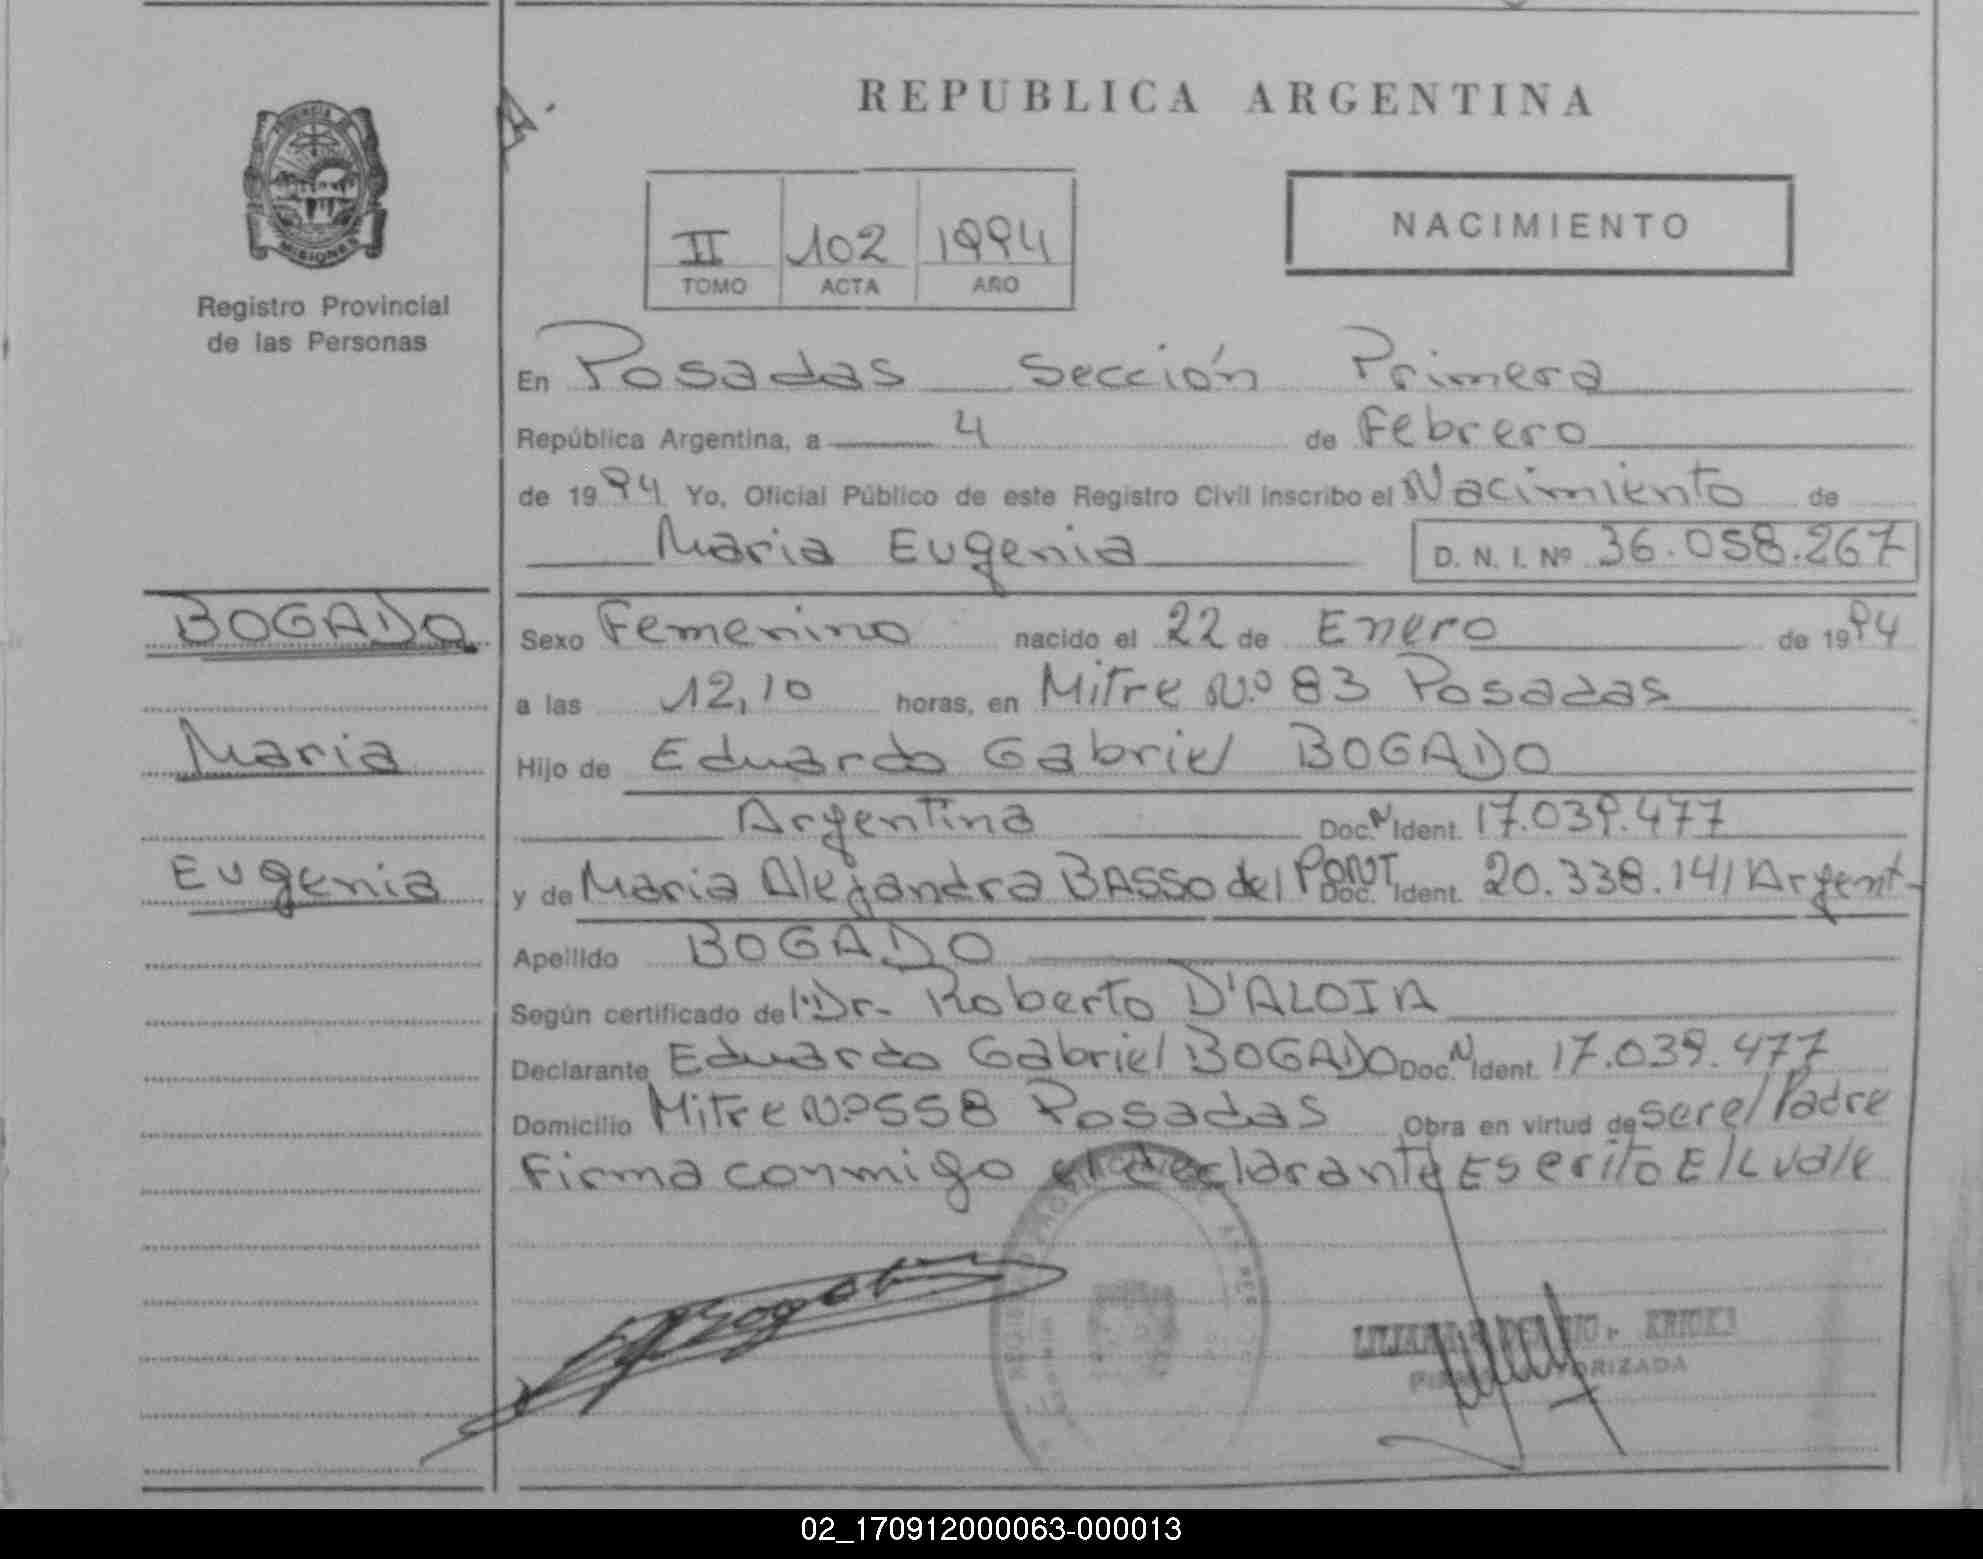 REPUBLICA ARGENTINA
PROVINCIA DE
MISIONES
Registro Provincial
de las Personas
II 102 1994
TOMO ACTA AÑO
NACIMIENTO
En Posadas Sección Primera
República Argentina, a 4 de Febrero
de 1994 Yo, Oficial Público de este Registro Civil inscribo el Nacimiento de
Maria Eugenia D. N. I. Nº 36.058.267
BOGADO
Maria
Eugenia
Sexo Femenino nacido el 22 de Enero de 1994
a las 12,10 horas, en Mitre Nº 83 Posadas
Hijo de Eduardo Gabriel BOGADO
Argentina Doc. N Ident. 17.039.477
y de Maria Alejandra BASSO del PONT Doc. Ident. 20.338.141 Argent-
Apellido BOGADO
Según certificado del Dr- Roberto D'ALOIA
Declarante Eduardo Gabriel BOGADO Doc. N Ident. 17.039.477
Domicilio Mitre Nº 558 Posadas Obra en virtud de ser el Padre
Firma conmigo el declarante Escrito El vale
LILIANA
AUTORIZADA
02_170912000063-000013